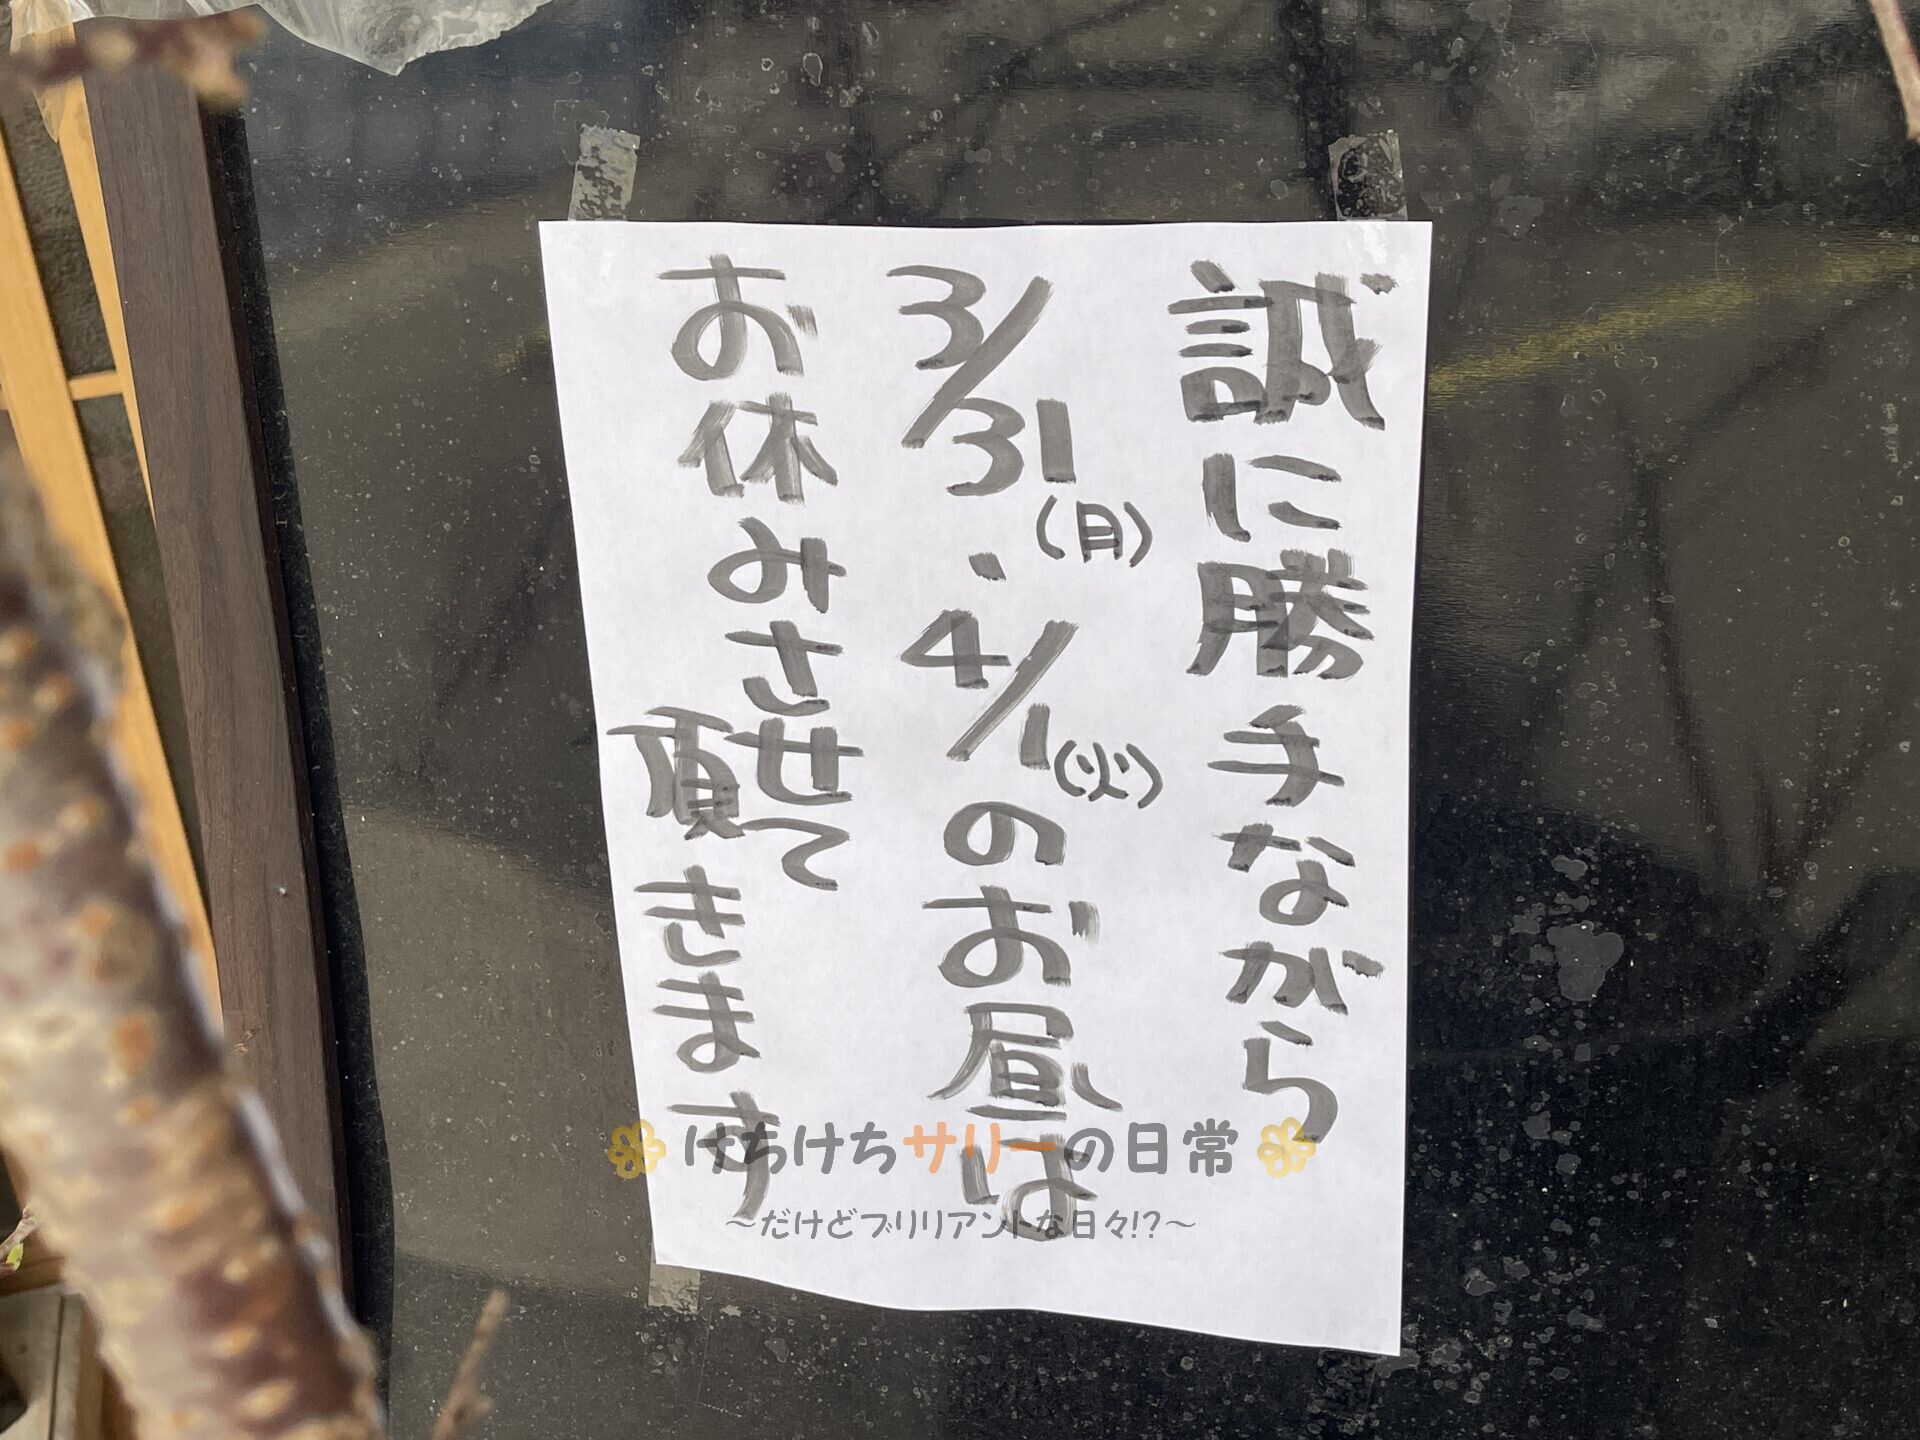 誠に勝手ながら
3/31(月)・4/1(火)のお昼は
お休みさせて
頂きます
けちけちサリーの日常
～だけどブリリアントな日々!?～